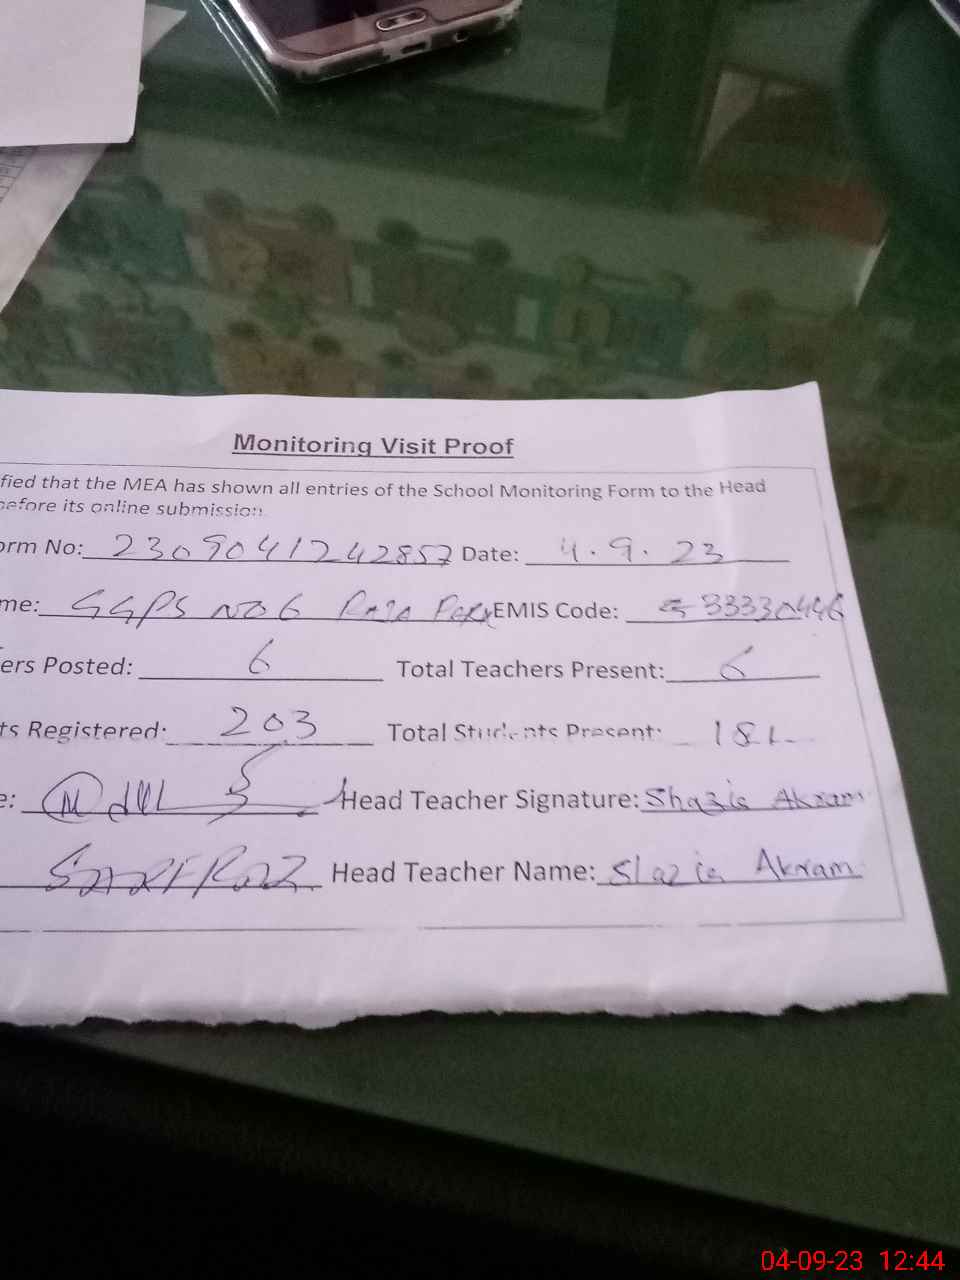 Monitoring Visit Proof
fied that the MEA has shown all entries of the School Monitoring Form to the Head
before its online submission
orm No: 2309041242857 Date: 4.9.23
me: GGPS NO 6 EMIS Code: 33330446
ers Posted: 6 Total Teachers Present: 6
ts Registered: 203 Total Students Present:
e: Head Teacher Signature: Shazia Akram
SARFRAZ Head Teacher Name: Shazia Akram
04-09-23 12:44